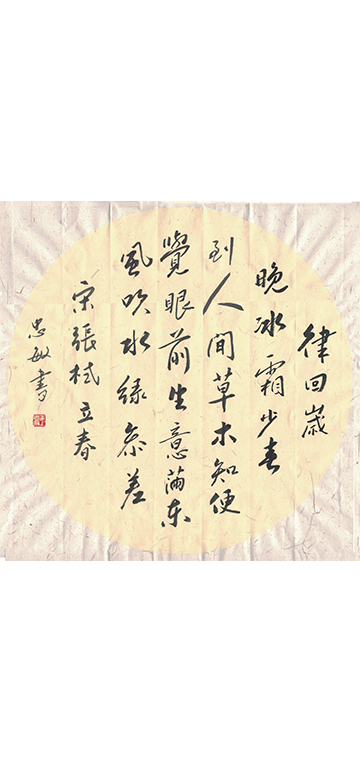 律回歲
晚冰霜少春
到人間草木知便
覺眼前生意滿东
風吹水緑参差
宋張栻立春
忠敏書